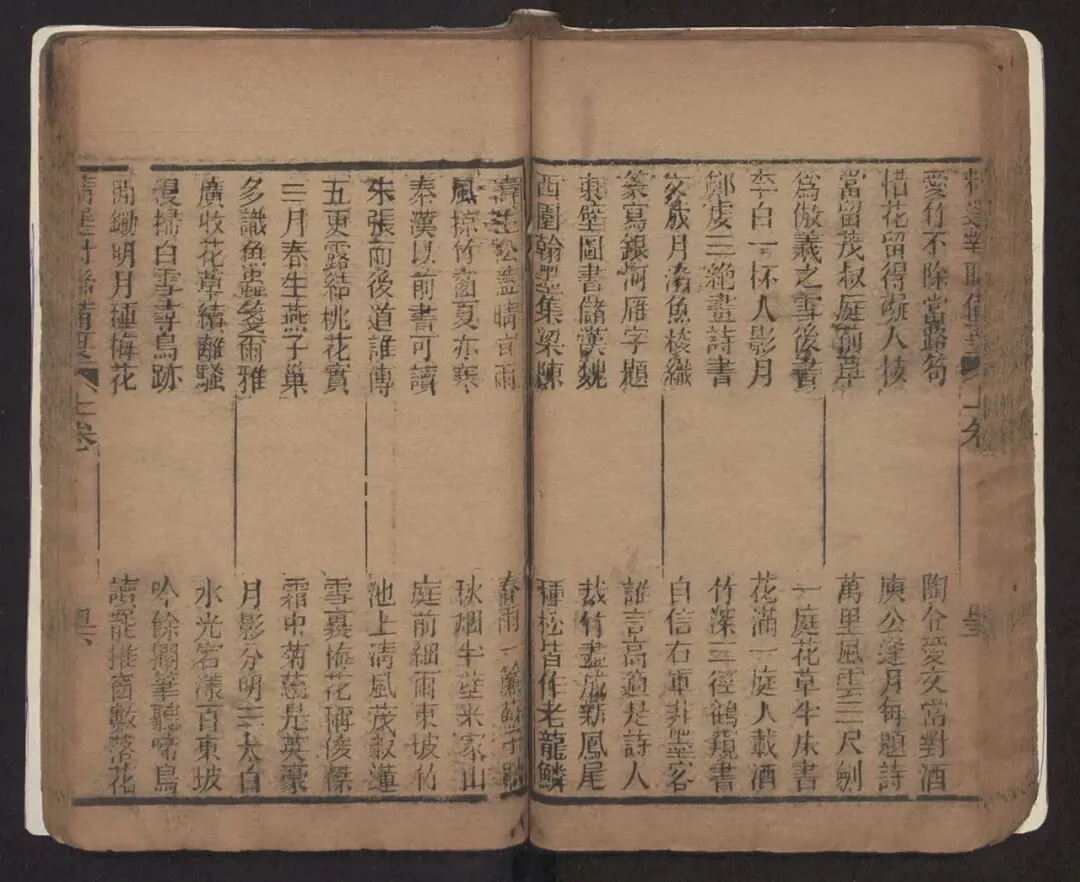 上卷
愛竹不除當路筍
惜花留得礙人枝
當留茂叔庭前草
為倣羲之雪後書
李白一杯人影月
鄭虔三絕畫詩書
歲月濤魚梭織
篆寫銀河雁字題
東壁圖書儲漢魏
西園翰墨集梁陳
陶令愛文當對酒
庾公逢月每題詩
萬里風雲三尺劍
一庭花草半床書
花滿一庭人載酒
竹深三徑鶴窺書
自信右軍非墨客
誰言高適是詩人
栽竹盡成新鳳尾
種松皆作老龍鱗
松蓋晴言雨
風掠竹窗夏亦寒
秦漢以前書可讀
朱張而後道誰傳
五更露結桃花實
三月春生燕子巢
多識魚蟲箋爾雅
廣收花草續離騷
漫掃白雪尋鳥跡
閒鋤明月種梅花
春雨一簾蘇子
秋烟半壁米家山
庭前細雨東坡竹
池上清風茂叔蓮
雪裏梅花稱俊傑
霜中菊蕊是英豪
月影分明三太白
水光宕漾百東坡
吟餘擱筆聽啼鳥
讀罷推窗數落花
上卷